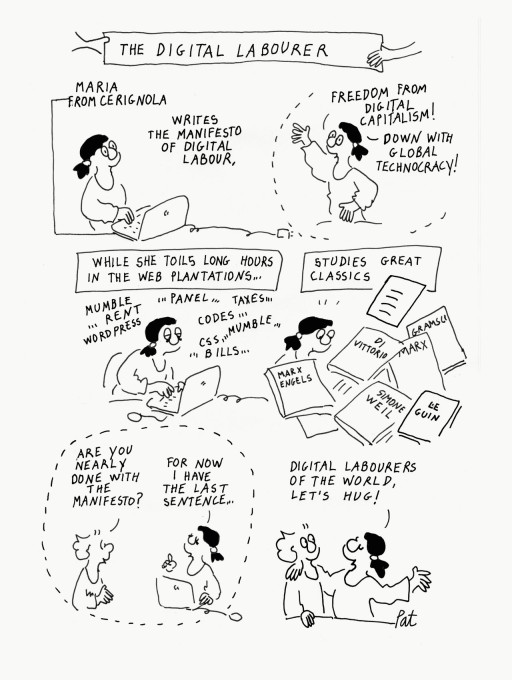 THE DIGITAL LABOURER
MARIA
FROM CERIGNOLA
WRITES
THE MANIFESTO
OF DIGITAL
LABOUR,
FREEDOM FROM
DIGITAL
CAPITALISM!
DOWN WITH
GLOBAL
TECHNOCRACY!
WHILE SHE TOILS LONG HOURS
IN THE WEB PLANTATIONS...
MUMBLE
... RENT
WORDPRESS
... PANEL ...
TAXES...
CODES ...
CSS...MUMBLE...
... BILLS...
STUDIES GREAT
CLASSICS
MARX
ENGELS
DI
VITTORIO
GRAMSCI
MARX
SIMONE
WEIL
LE
GUIN
ARE YOU
NEARLY
DONE WITH
THE
MANIFESTO?
FOR NOW
I HAVE
THE LAST
SENTENCE...
DIGITAL LABOURERS
OF THE WORLD,
LET'S HUG!
Pat